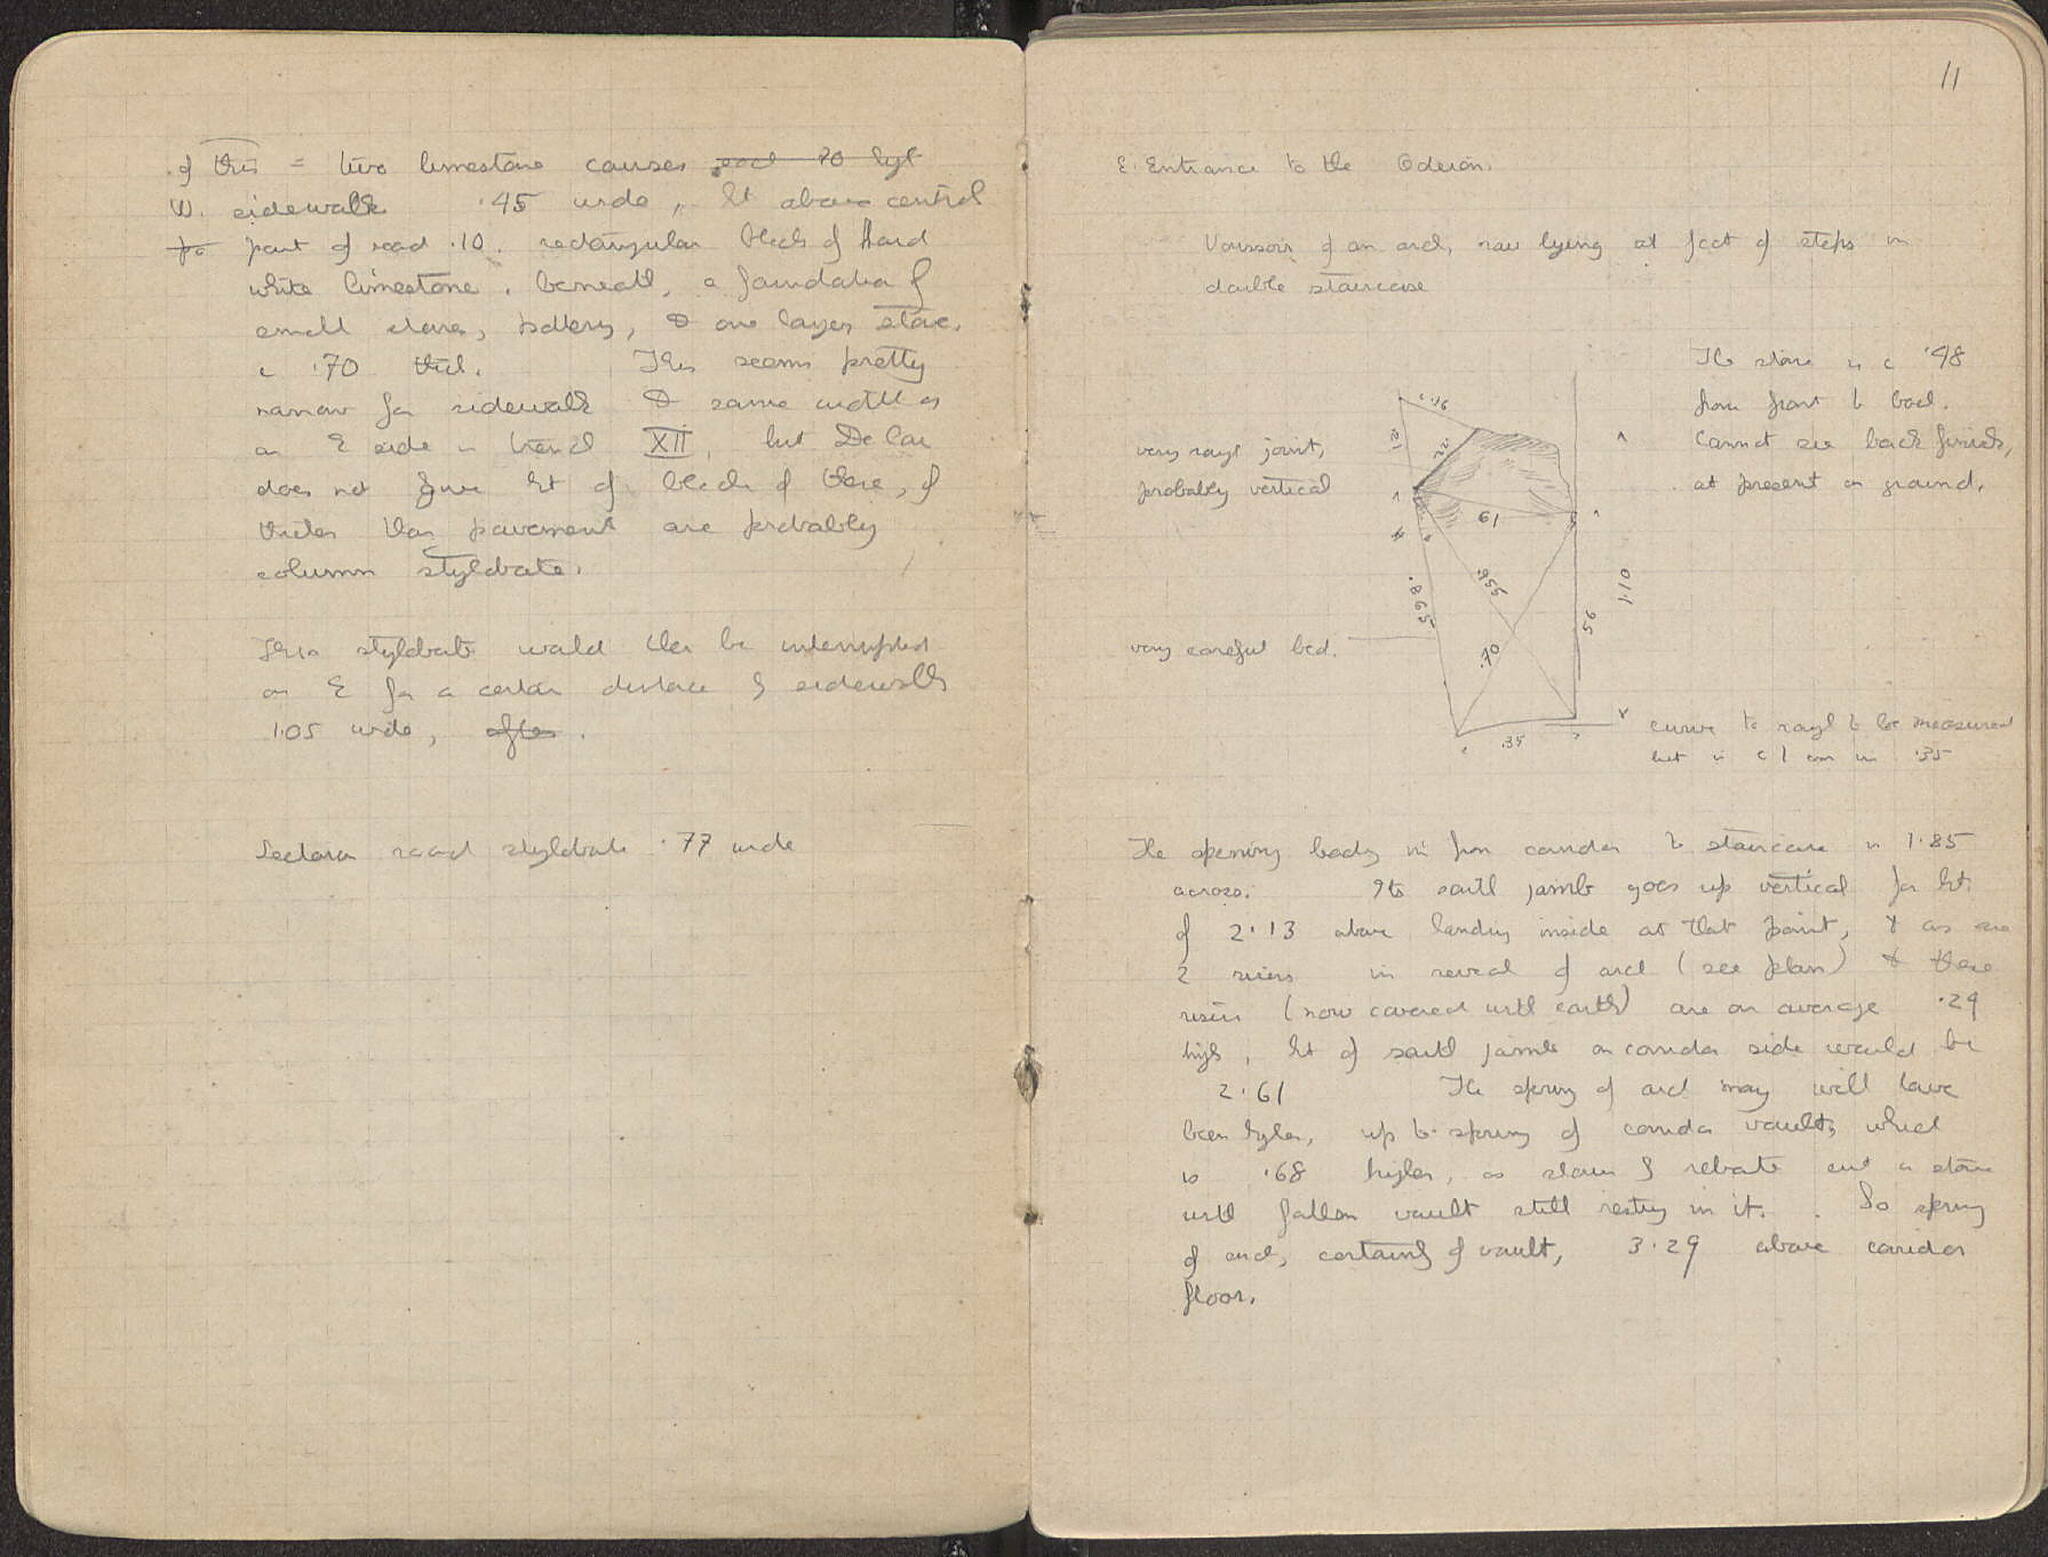 of this = two limestone courses each 70 hgt
W. sidewalk .45 wide, ht above central
part of road .10. rectangular blocks of hard
white limestone, beneath, a foundation of
small stones, pottery, & one layer stone,
c .70 thick. This seems pretty
narrow for sidewalk & same width as
on E side in trench XII, but De Lou
does not give ht of blocks of these, if
thicker than pavement are probably
column stylobate.
This stylobate would then be interrupted
on E for a certain distance by sidewalk
1.05 wide, after.
road stylobate .77 wide
11
E. Entrance to the Odeion.
Voussoir of an arch, now lying at foot of steps in
double staircase
The stone is c .48
from front to back.
Cannot see back finish,
at present on ground.
very rough joint,
probably vertical
very careful bed.
.16
.21
.22
61
.556
.568
.70
56
1.10
.35
curve to rough to be measured
but is c 1 cm in .35
The opening leading in from corridor to staircase is 1.85
across. Its south jamb goes up vertical for ht.
of 2.13 above landing inside at that point, & as are
2 risers in reveal of arch (see plan) & these
risers (now covered with earth) are on average .24
high, ht of south jamb on corridor side would be
2.61 The spring of arch may well have
been higher, up to spring of corridor vault, which
is .68 higher, as shown by rebate cut in stone
with fallen vault still resting in it. So spring
of arch, certainly of vault, 3.29 above corridor
floor.